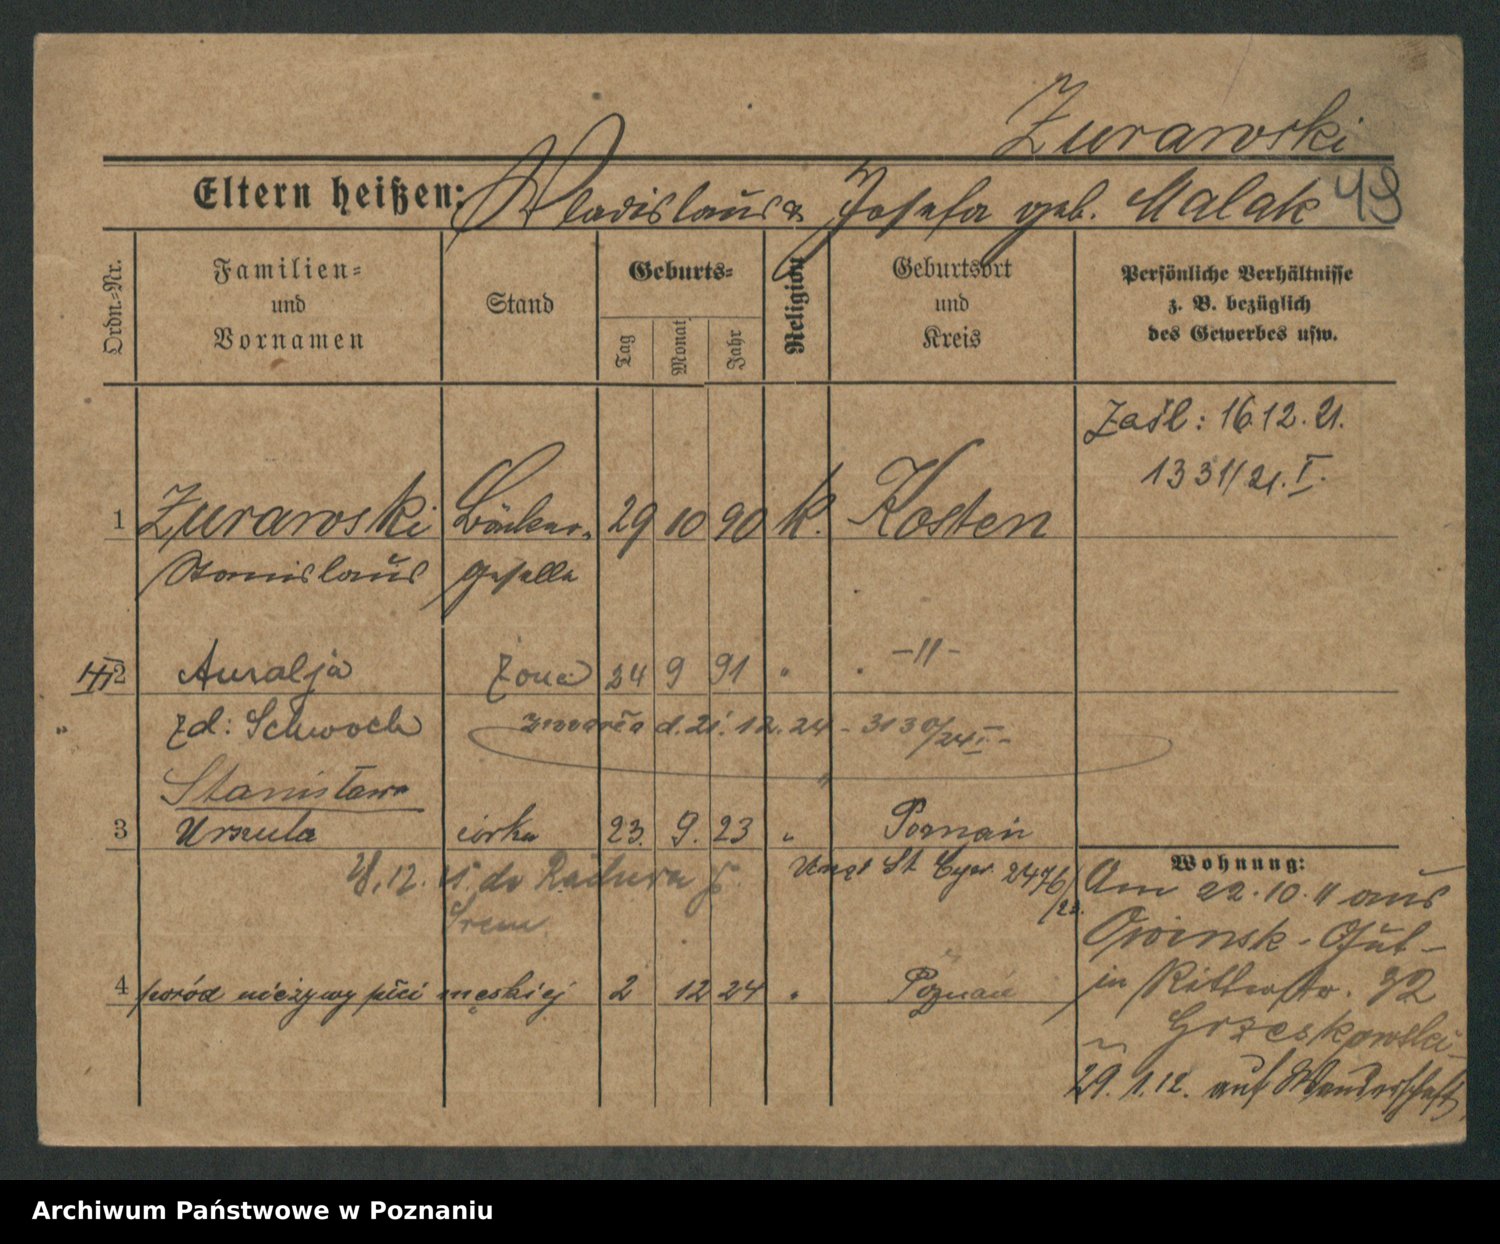 Żurawski
Eltern heißen: Wladislaus & Josefa geb. Malak 49
Ordn.-Nr.
Familien-
und
Vornamen
Stand
Geburts-
Tag
Monat
Jahr
Religion
Geburtsort
und
Kreis
Persönliche Verhältnisse
z. B. bezüglich
des Gewerbes usw.
Zaśl: 16.12.21.
1331/21.I.
1 Żurawski Bäcker- 29 10 90 k. Kosten
Stanislaus geselle
2 Auralja żona 24 9 91 " -"-
zd: Schwoch zmarła d. 21.12.24 - 3130/24 I -
Stanisława
3 Urszula córka 23. 9. 23 " Poznań
Urząd St. Cyw. 2476/23.
do
Śrem
4 poród nieżywy płci męskiej 2 12 24 " Poznań
Wohnung:
Am 22.10.11 aus
Owinsk-Gut-
in Ritterstr. 32
Grzeskowski-
29.1.12. auf Wanderschaft
Archiwum Państwowe w Poznaniu